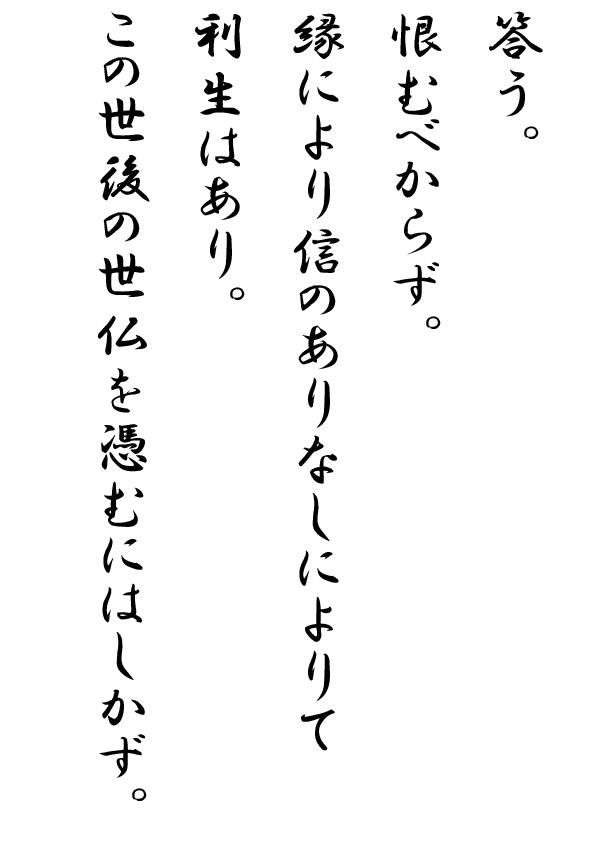 答う。
恨むべからず。
縁により信のありなしによりて
利生はあり。
この世後の世仏を憑むにはしかず。